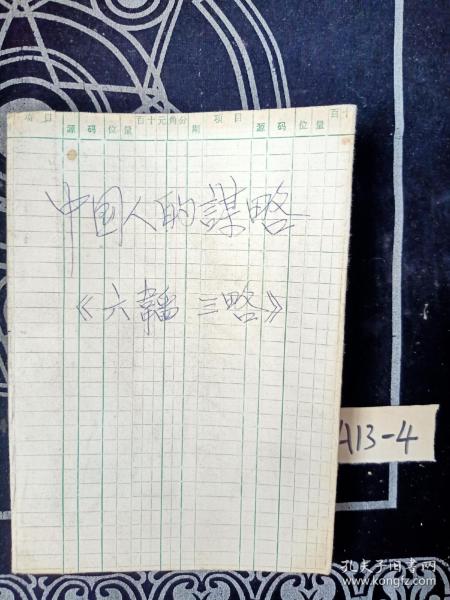 项目 源码 位 量 百十元角分 期 项目 源码 位 量 百十
中国人的謀略
《六韜 三略》
A13-4
孔夫子旧书网
www.kongfz.com